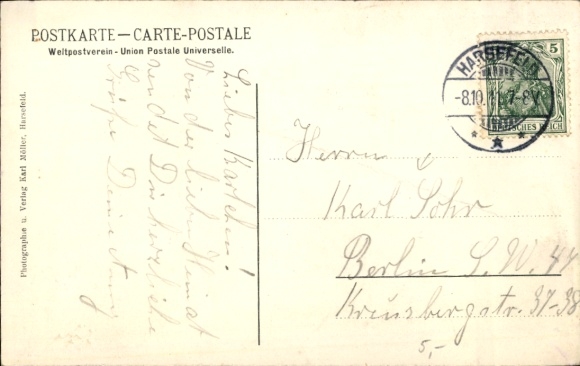 POSTKARTE — CARTE-POSTALE
Weltpostverein - Union Postale Universelle.
Photographie u. Verlag Karl Möller, Harsefeld.
Liebes Karlchen!
Von der lieben Heimat
sendet Dir herzliche
Grüße Deine
HARSEFELD
-8.10. 7-8V
5
DEUTSCHES REICH
Herrn
Karl Sohr
Berlin S.W. 47
Kreuzbergstr. 37-38
5,-